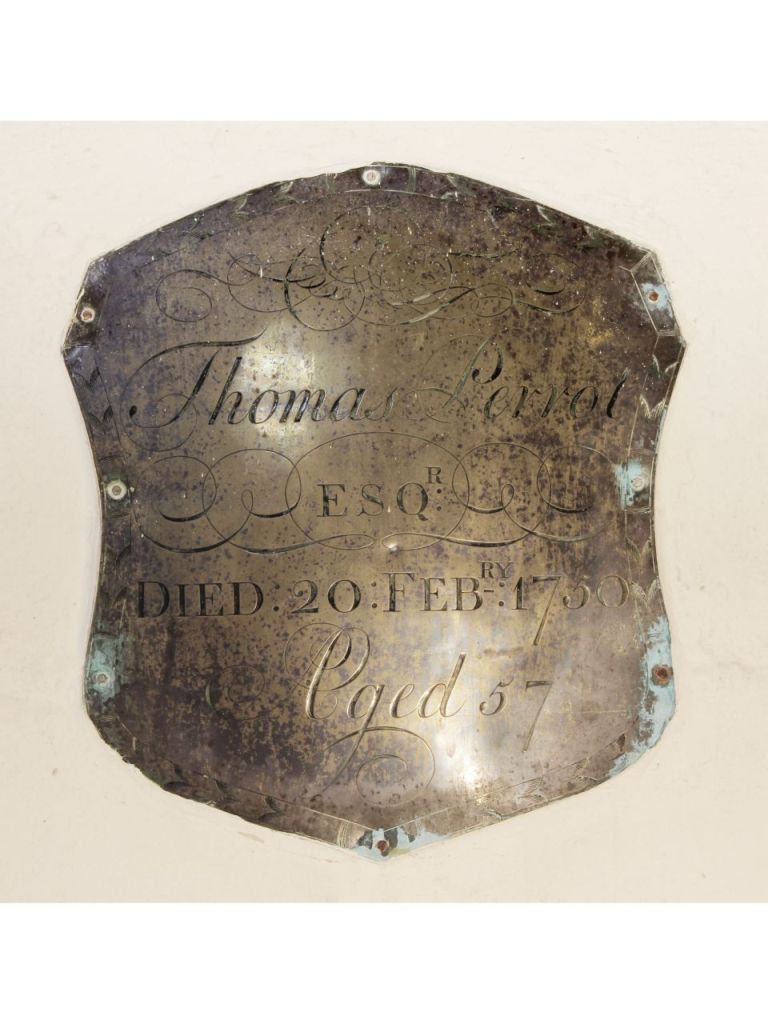 Thomas Perrot
ESQR:
DIED: 20: FEBRY: 1750
Aged 57